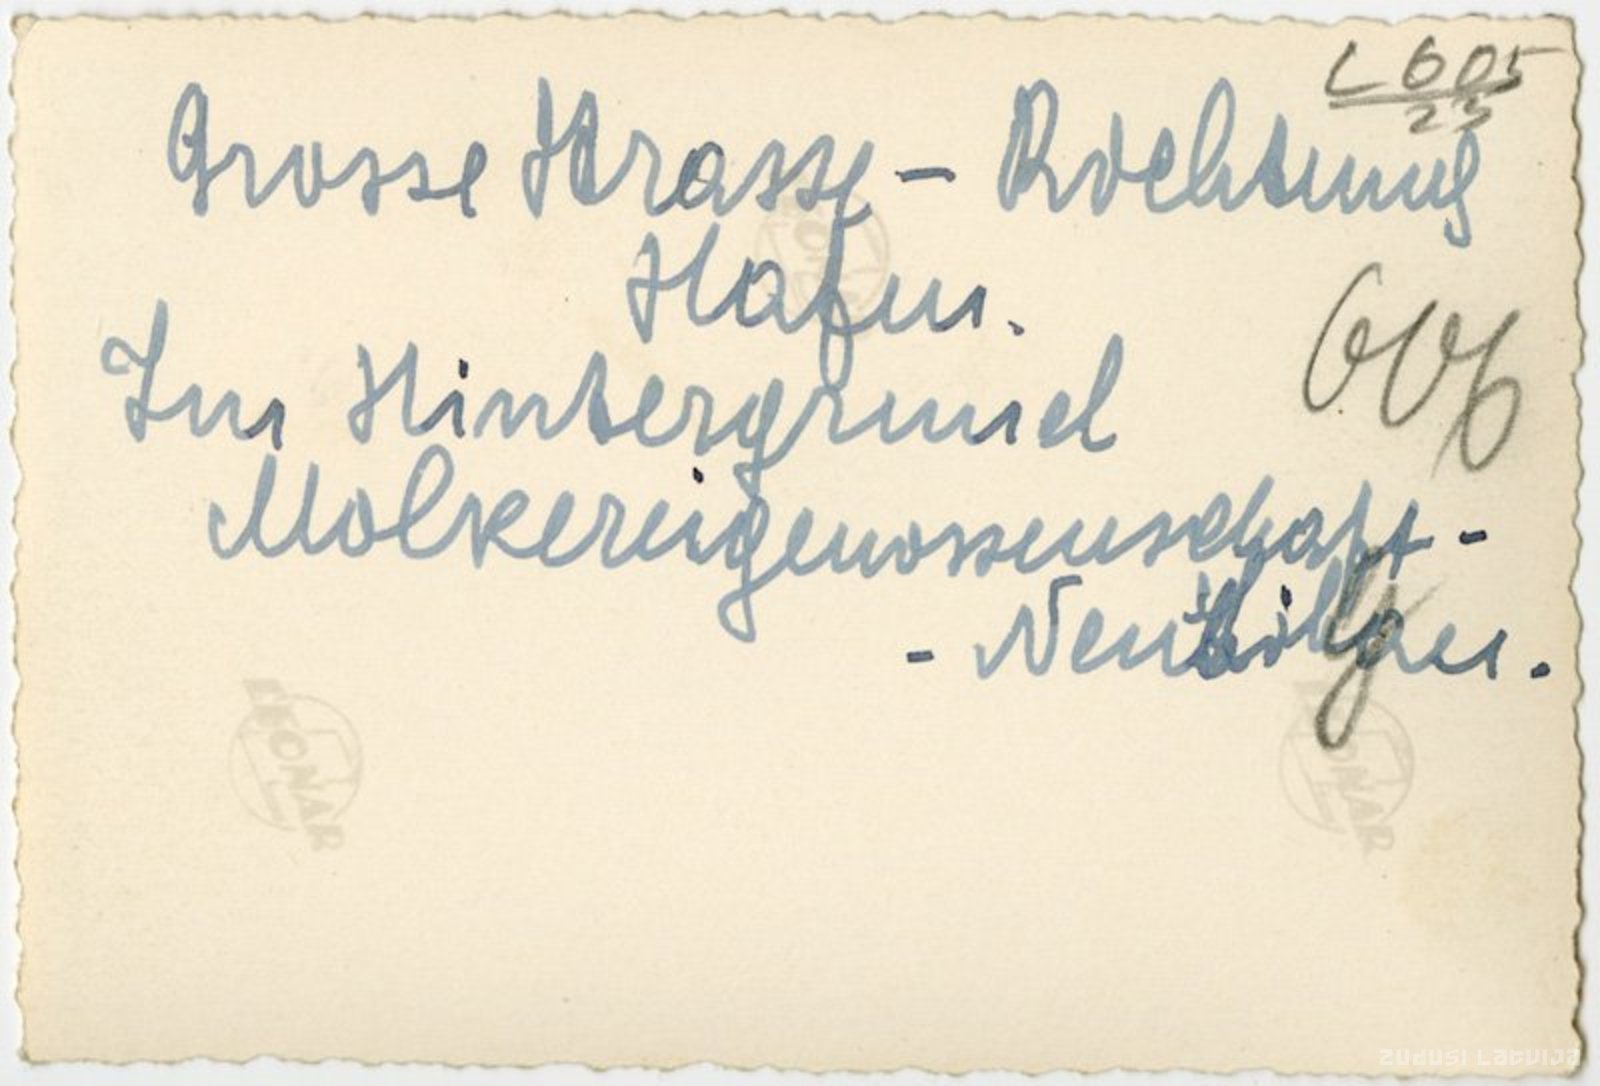 L 605
23
Grosse Strasse – Richtung
Hafen.
606
Im Hintergrund
Molkereigenossenschaft -
- Neu
LEONAR
LEONAR
LEONAR
zudusi Latvija